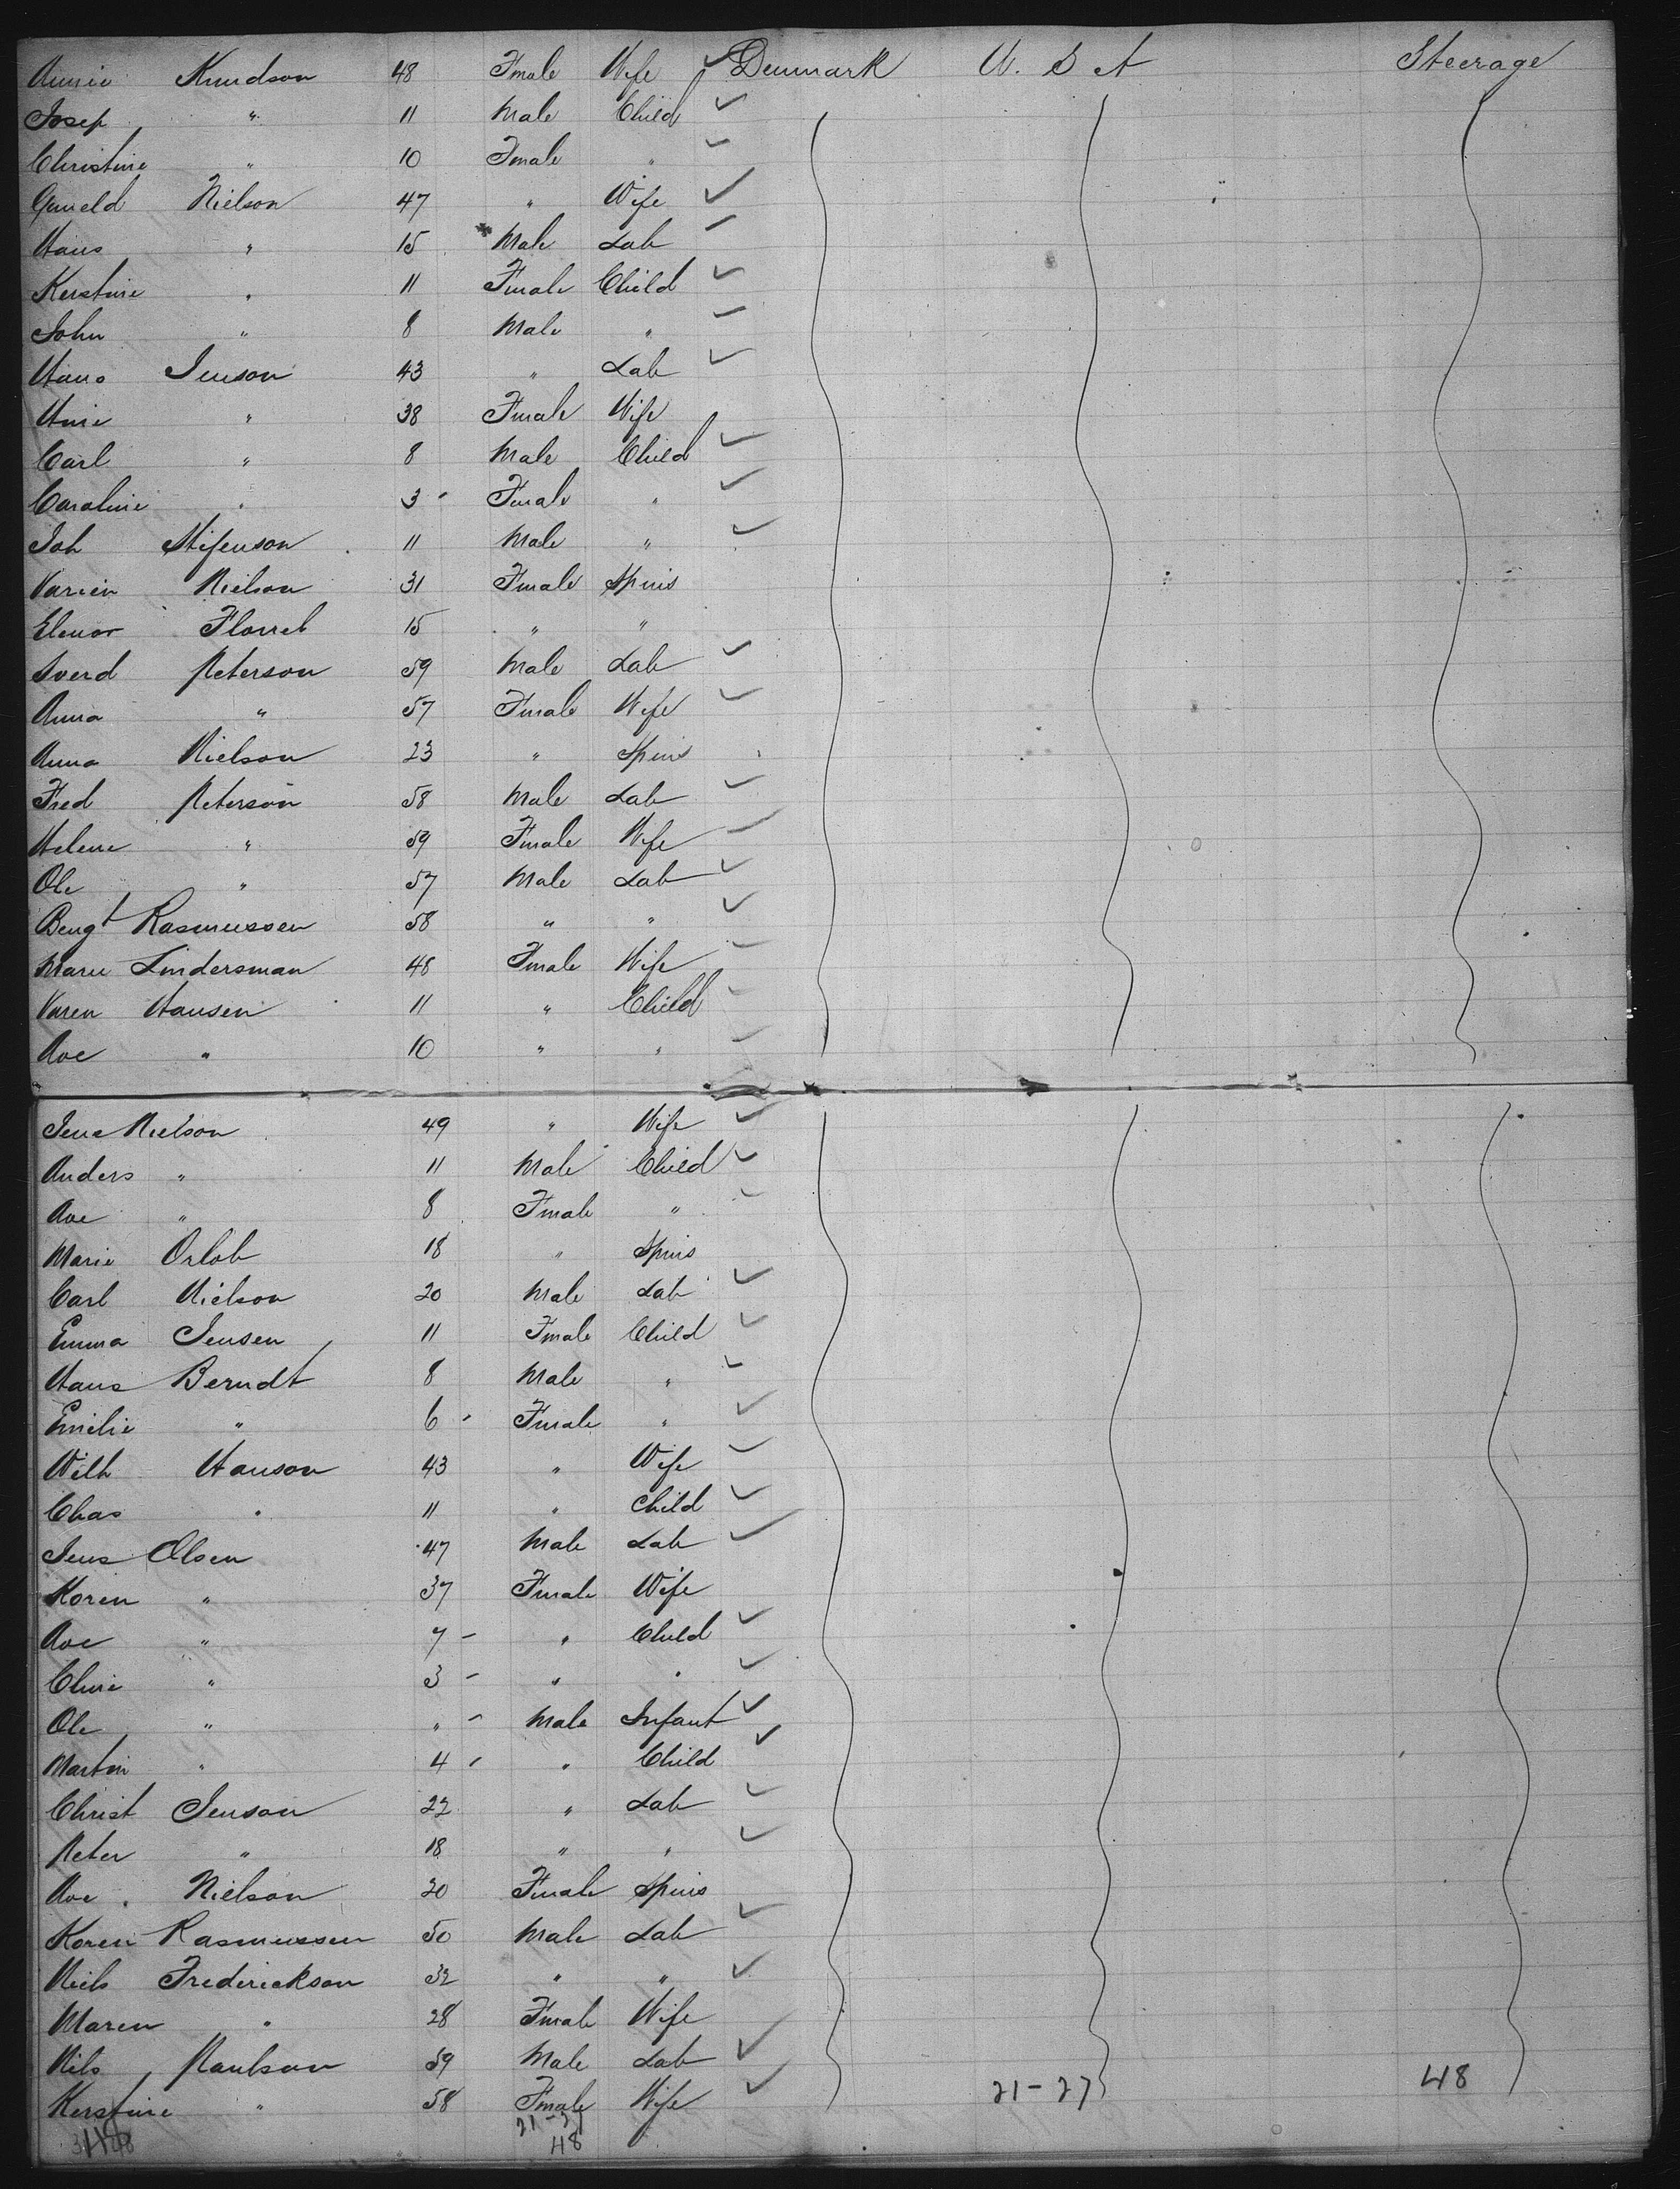 Annie Knudson 48 Fmale Wife ✓ Denmark U. S A Steerage
Josef " 11 Male Child ✓
Christine " 10 Fmale " ✓
Nielson 47 " Wife ✓
Hans " 15 Male Lab ✓
Kerstine " 11 Fmale Child ✓
John " 8 Male " ✓
Hans Jenson 43 " Lab ✓
Anie " 38 Fmale Wife
Carl " 8 Male Child ✓
Caroline " 3 - Fmale " ✓
Joh Stifenson 11 Male " ✓
Karien Nielson 31 Fmale Spins
Elenor 15 " "
Sverd Peterson 59 Male Lab ✓
Anna " 57 Fmale Wife ✓
Anna Nielson 23 " Spins
Fred Peterson 58 Male Lab ✓
Helene " 59 Fmale Wife ✓
Ole " 57 Male Lab ✓
Bengt Rasmussen 58 " " ✓
Marie Lindersman 48 Fmale Wife ✓
Karen Hansen 11 " Child ✓
Ane " 10 " " ✓
Jens Nielson 49 " Wife ✓
Anders " 11 Male Child ✓
Ane " 8 Fmale " ✓
Marie Orlob 18 " Spins
Carl Nielson 20 Male Lab ✓
Emma Jensen 11 Fmale Child ✓
Hans Berndt 8 Male " ✓
Emilie " 6 - Fmale " ✓
Wilh Hanson 43 " Wife ✓
Chas " 11 " Child ✓
Jens Olsen 47 Male Lab ✓
Koren " 37 Fmale Wife
Ane " 7 - " Child ✓
Cline " 3 - " " ✓
Ole " " - Male Infant ✓
Martin " 4 - " Child ✓
Christ Jenson 22 " Lab ✓
Peter " 18 " " ✓
Ane Nielson 20 Fmale Spins
Koren Rasmussen 50 Male Lab ✓
Niels Frederickson 32 " " ✓
Maren " 28 Fmale Wife
Nils Paulson 59 Male Lab ✓
Kerstine " 58 Fmale Wife ✓ 21-27 48
48 21-27
48